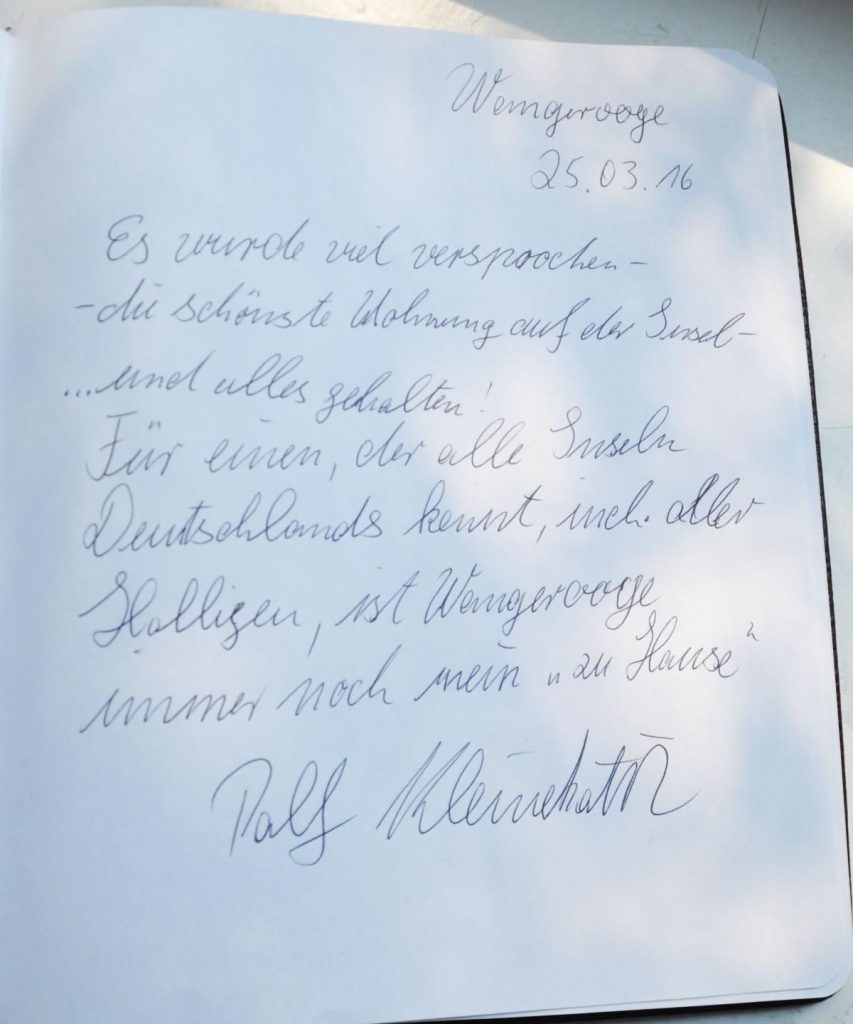 Wangerooge
25.03.16
Es wurde viel versprochen -
- die schönste Wohnung auf der Insel -
... und alles gehalten!
Für einen, der alle Inseln
Deutschlands kennt, incl. aller
Halligen, ist Wangerooge
immer noch mein „zu Hause“
Ralf